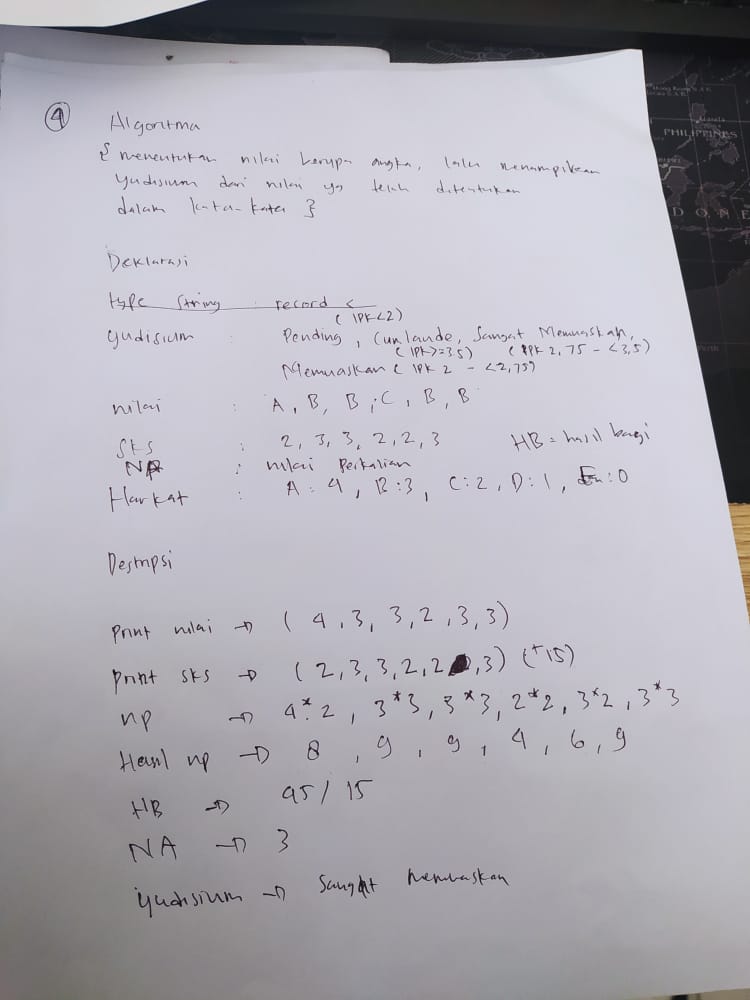 4
Algoritma
{ menentukan nilai berupa angka, lalu menampilkan
yudisium dari nilai yg telah ditentukan
dalam kata-kata }
Deklarasi
type string : record <
(IPK<2)
yudisium : Pending, Cumlaude, Sangat Memuaskan,
(IPK>=3.5) (IPK 2,75 - <3,5)
Memuaskan (IPK 2 - <2,75)
nilai : A, B, B, C, B, B
SKS : 2, 3, 3, 2, 2, 3 HB = hasil bagi
NP : nilai Perkalian
Harkat : A : 4, B : 3, C : 2, D : 1, E : 0
Deskripsi
print nilai → ( 4, 3, 3, 2, 3, 3)
print sks → (2, 3, 3, 2, 2, 3) (+15)
np → 4*2, 3*3, 3*3, 2*2, 3*2, 3*3
Hasil np → 8, 9, 9, 4, 6, 9
HB → 45/15
NA → 3
yudisium → Sangat memuaskan
PHILIPPINES